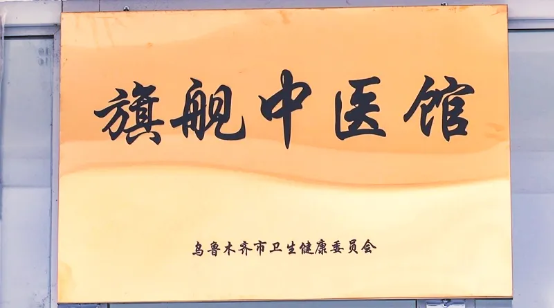 旗舰中医馆
乌鲁木齐市卫生健康委员会